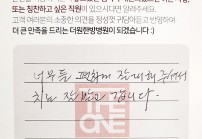 또는 칭찬하고 싶은 직원이 있으시다면 알려주세요.
고객 여러분의 소중한 의견을 정성껏 귀담아듣고 반영하여
더 큰 만족을 드리는 더원한방병원이 되겠습니다 :)
너무들 편하게 잘 대해 주셔서
치료 잘 받고 갑니다.
THE
ONE